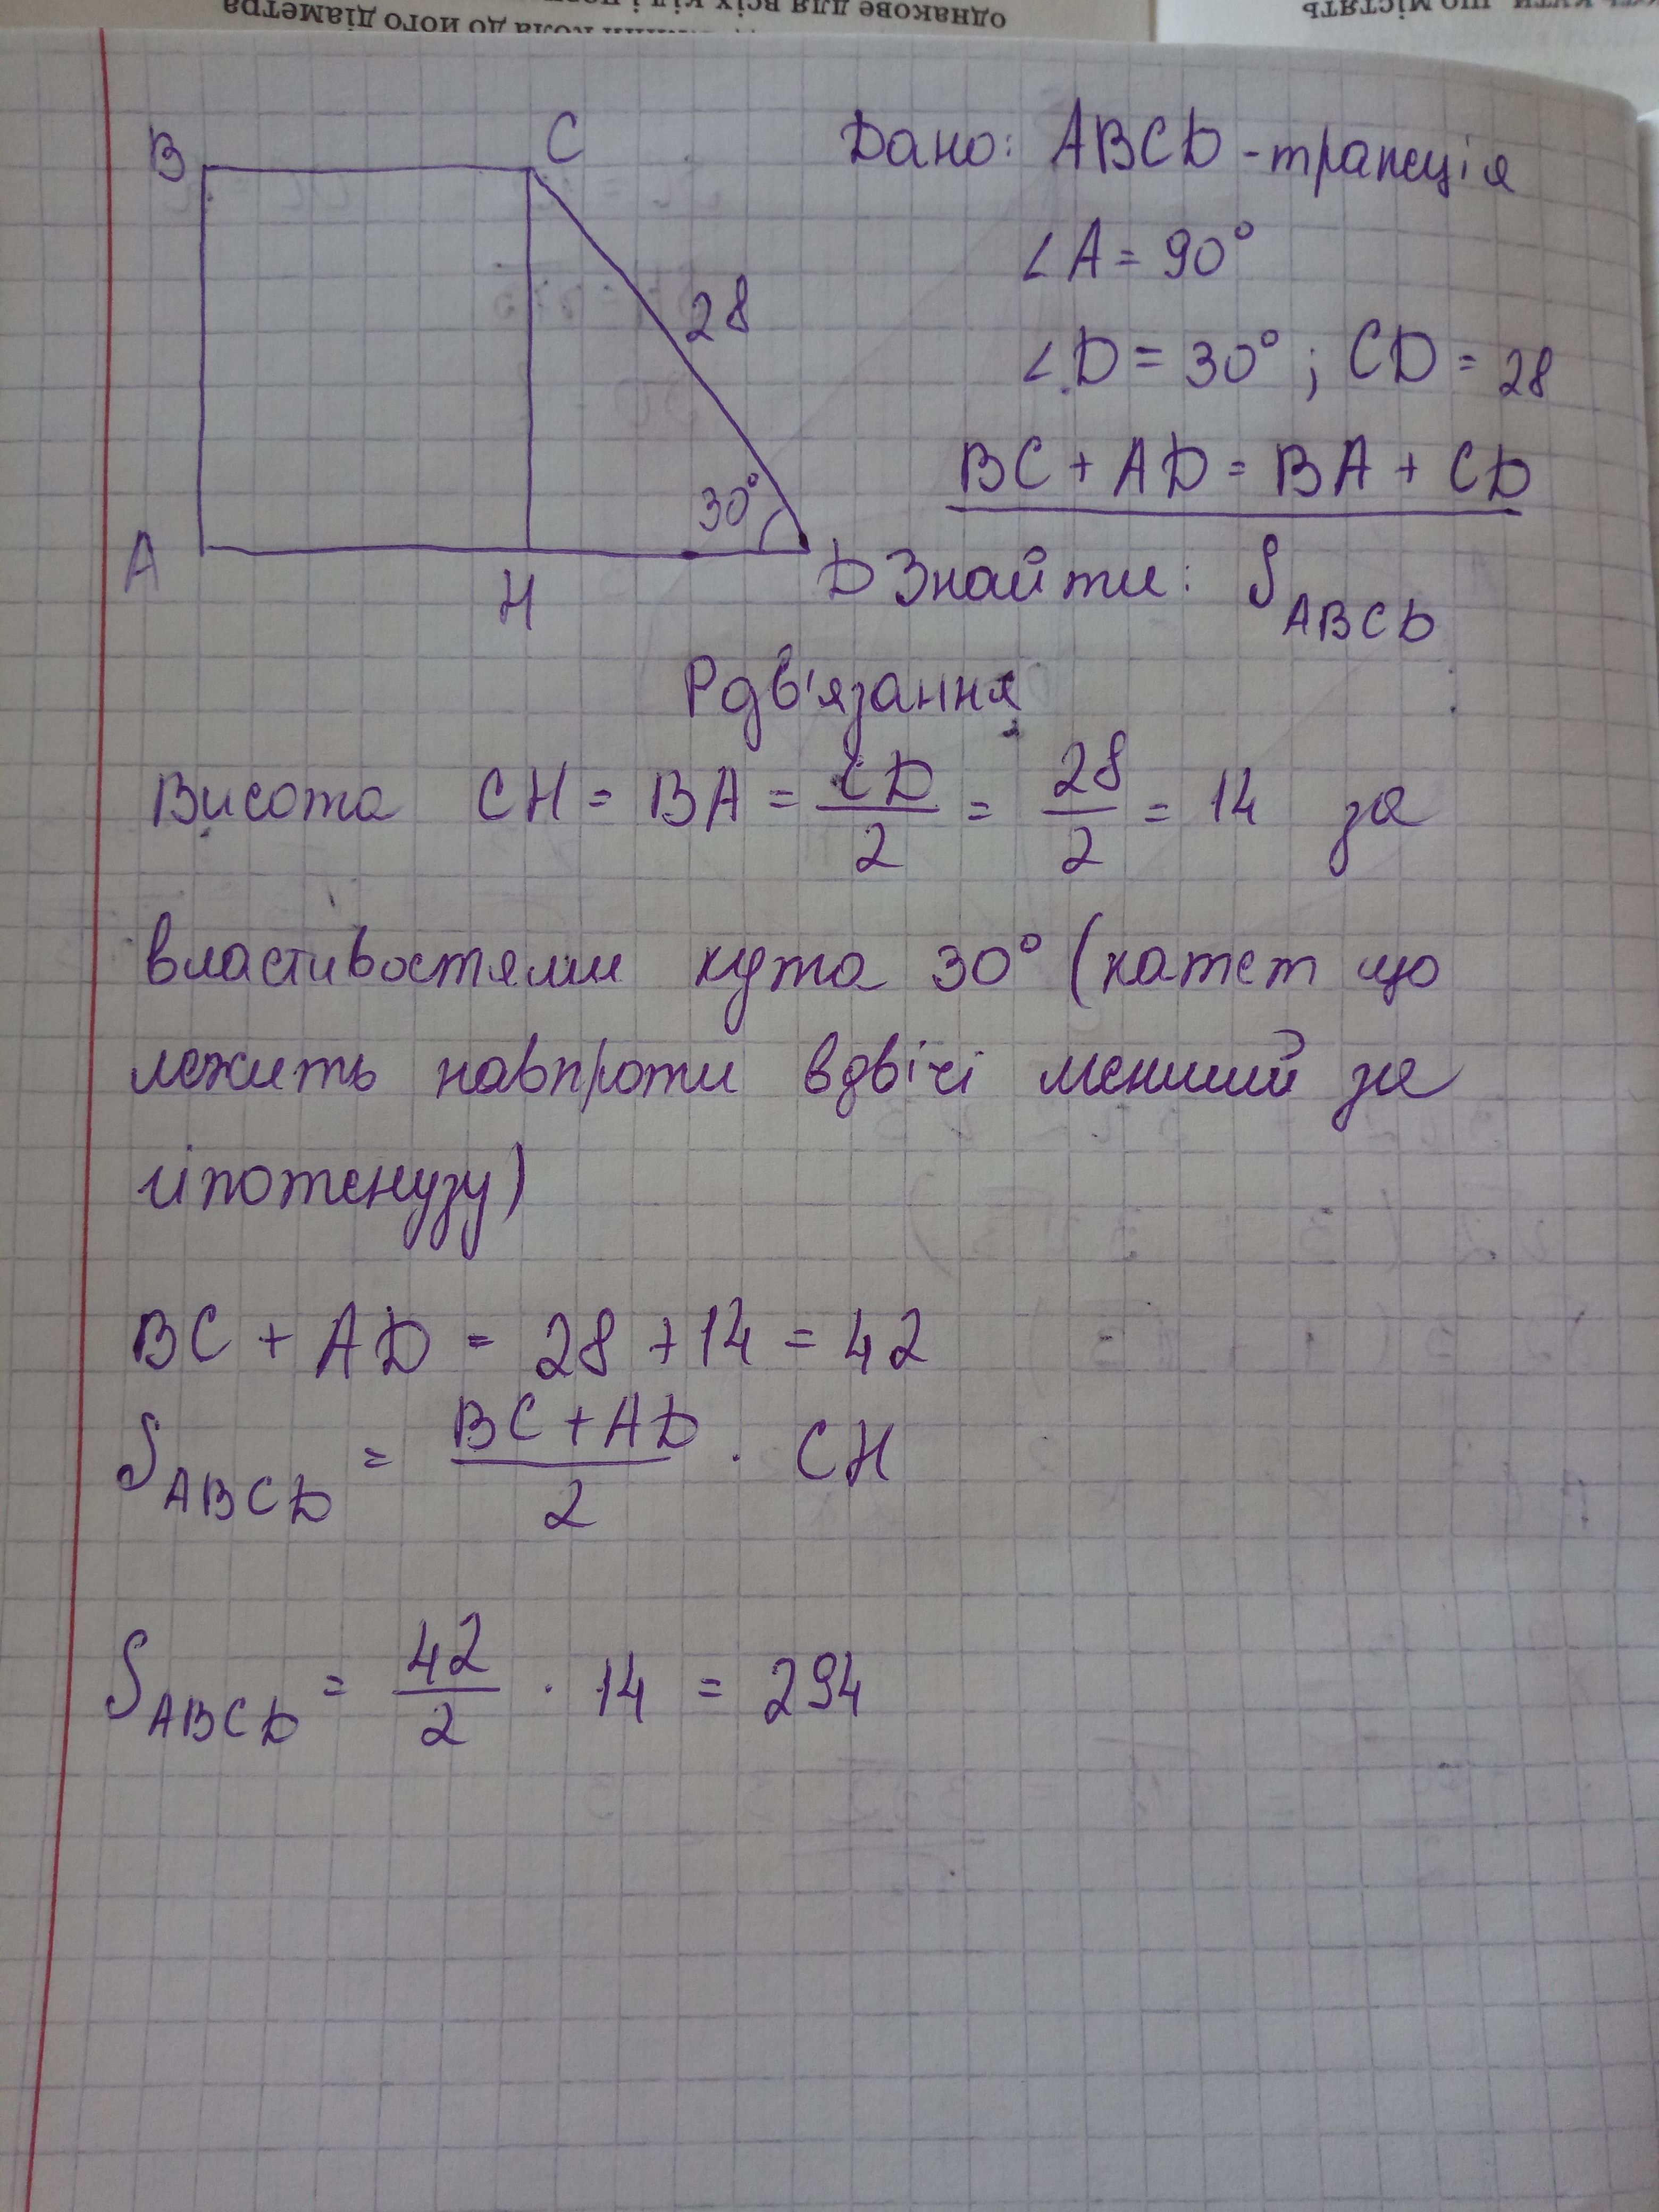 однакове для всіх кіл і
кола до його діаметра
що містять
B
C
Дано: ABCD - трапеція
∠A = 90°
28
∠D = 30° ; CD = 28
BC + AD = BA + CD
30°
A
H
D
Знайти: S ABCD
Рдв'язання
Висота CH = BA = CD/2 = 28/2 = 14 за
властивостями кута 30° (катет що
лежить навпроти вдвічі менший за
гіпотенузу)
BC + AD = 28 + 14 = 42
S ABCD = (BC + AD)/2 · CH
S ABCD = 42/2 · 14 = 294